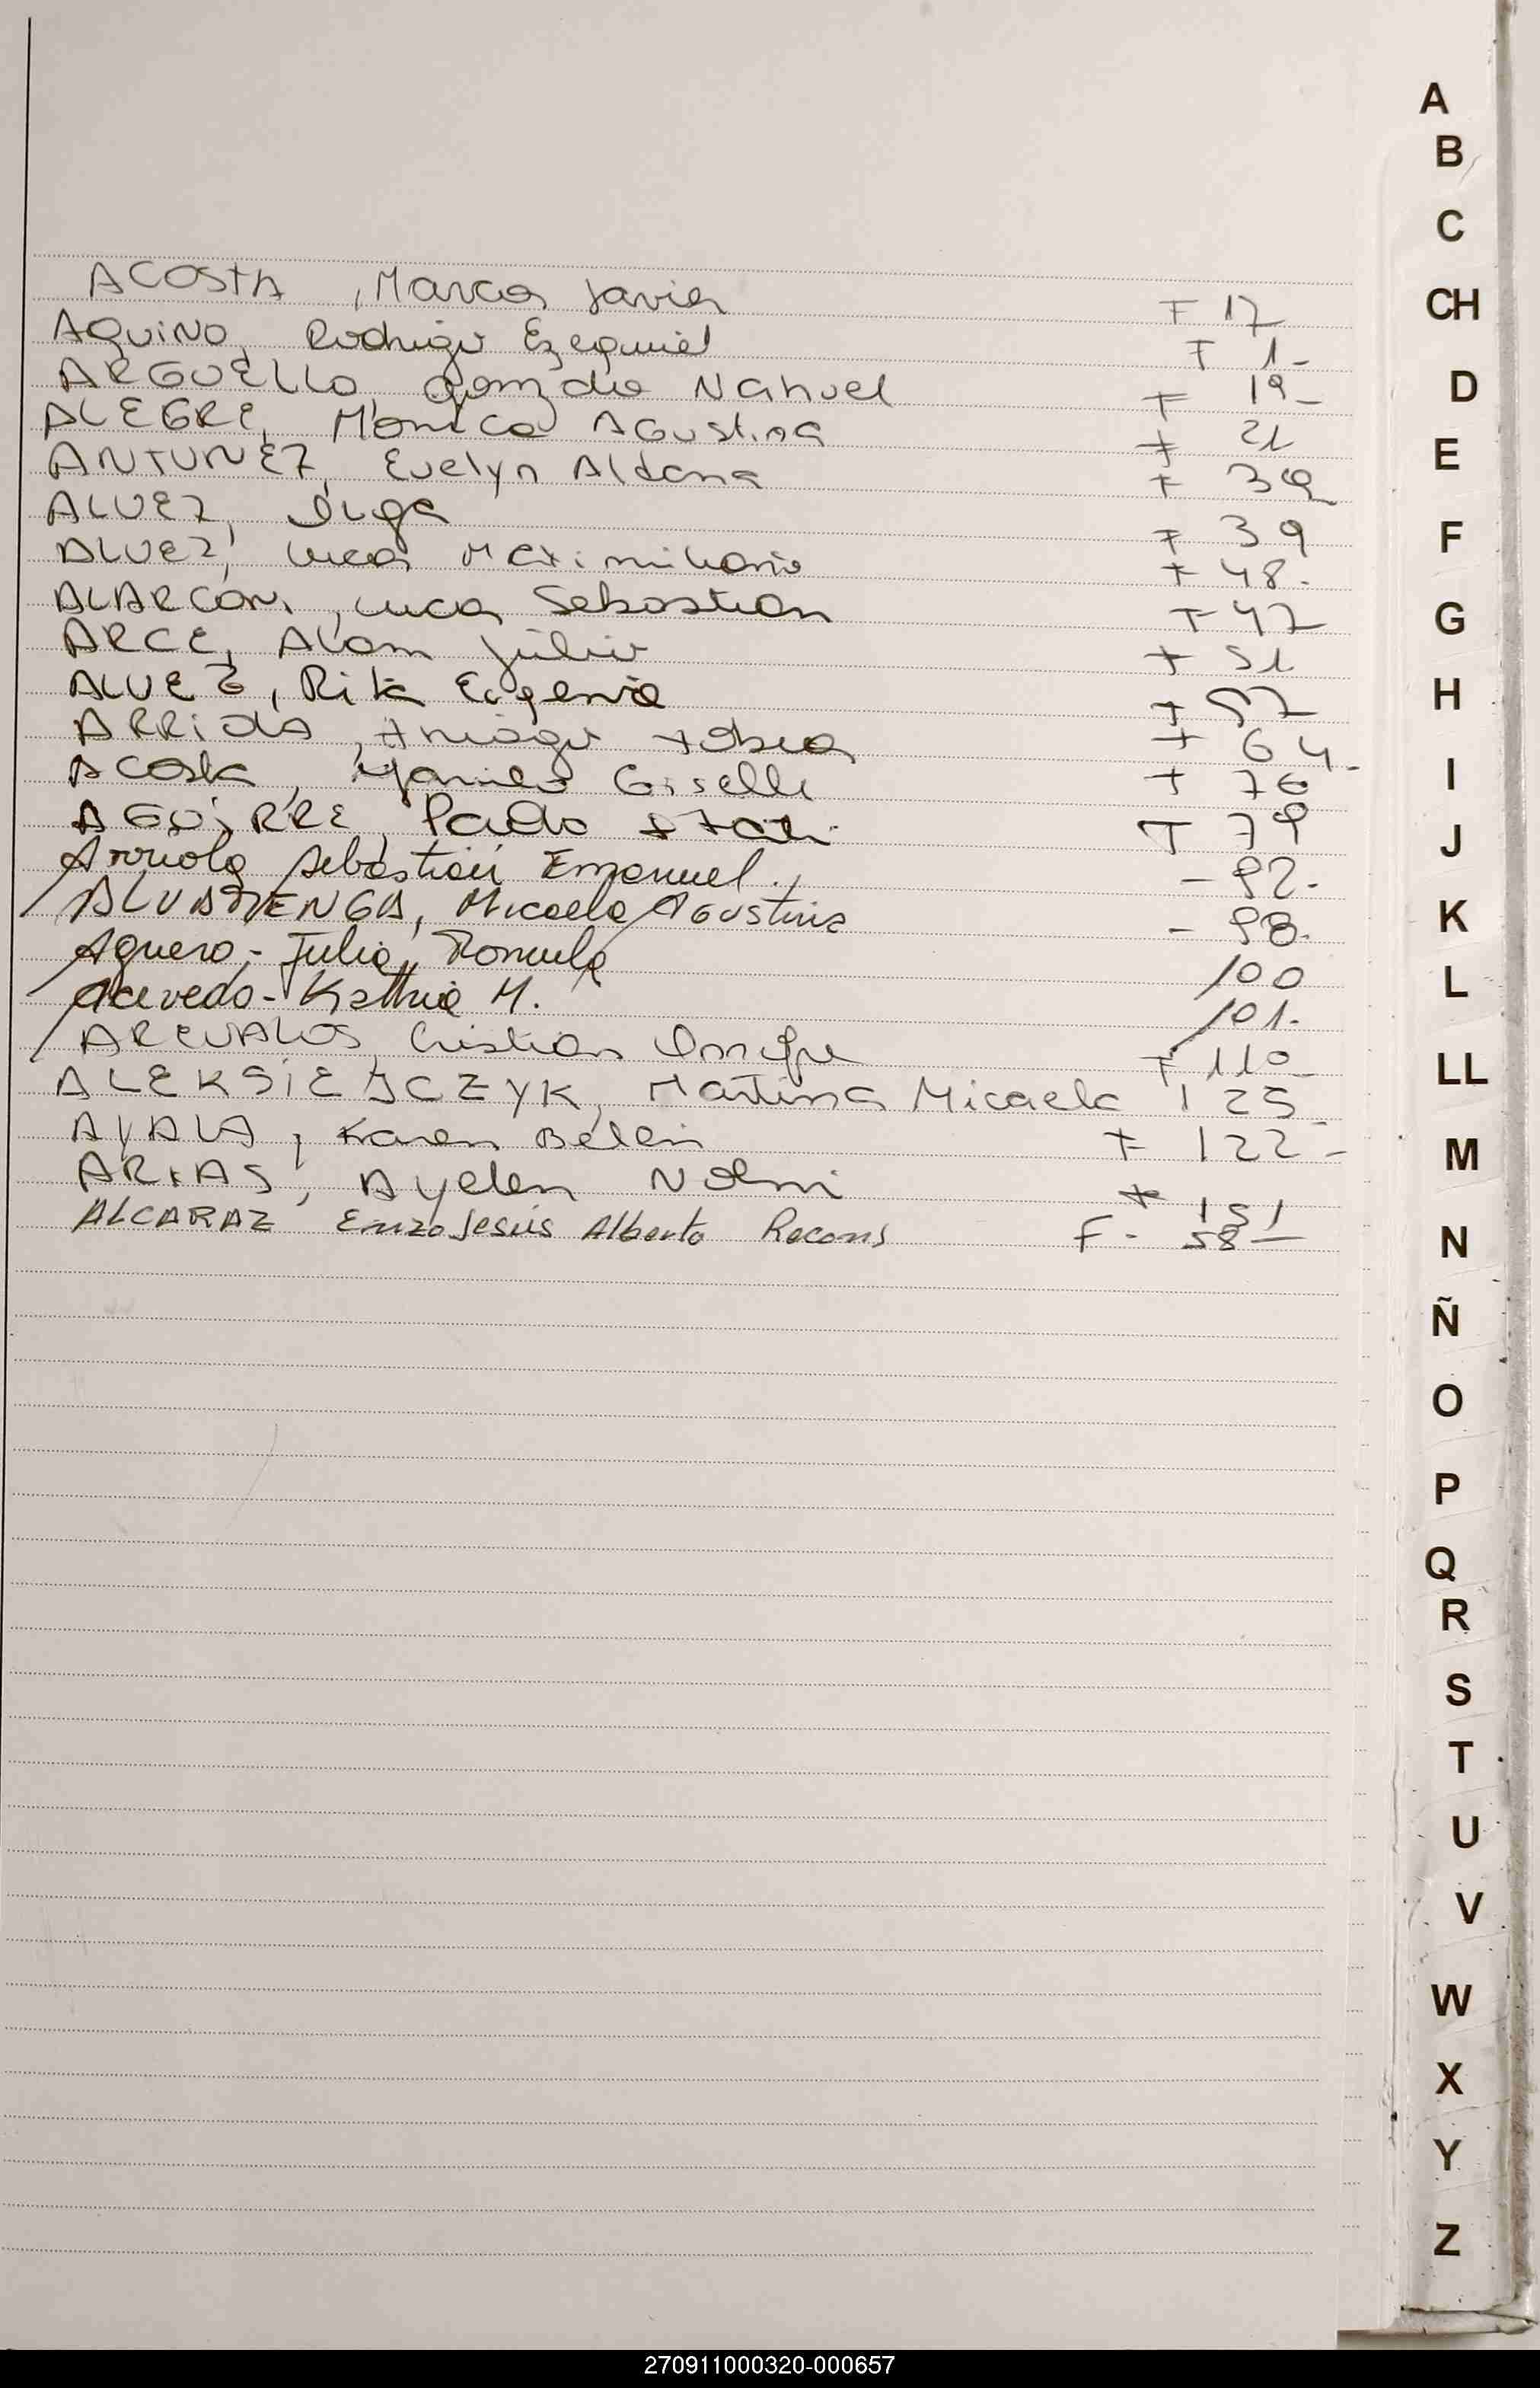 ACOSTA, Marcos Javier F 17
AQUINO, Rodrigo Ezequiel F 1-
ARGUELLO, Gonzalo Nahuel F 19-
ALEGRE, Monica Agustina F 21
ANTUNEZ, Evelyn Aldana F 39
ALVEZ, Olga F 39
ALVEZ, Lucas Maximiliano F 48-
ALARCON, Lucas Sebastian F 47
ARCE, Alan Julio F 51
ALVEZ, Rita Eugenia F 57
ARRIOLA, Thiago Tobias F 64-
ACOSTA, Giselle F 76
AGUIRRE, F 79
Arriola Sebastian Emanuel. - 92-
ALVARENGA, Micaela Agustina - 98-
Aguero - Julia, Romula 100
Acevedo - Kathia M. 101-
AREVALOS, Cristian Enrique F 110-
ALEKSIEJCZYK, Martina Micaela 125-
AYALA, Karen Belen F 122-
ARIAS, Ayelen Noemi F 151
ALCARAZ Enzo Jesús Alberto Recons F- 58-
A
B
C
CH
D
E
F
G
H
I
J
K
L
LL
M
N
Ñ
O
P
Q
R
S
T
U
V
W
X
Y
Z
270911000320-000657